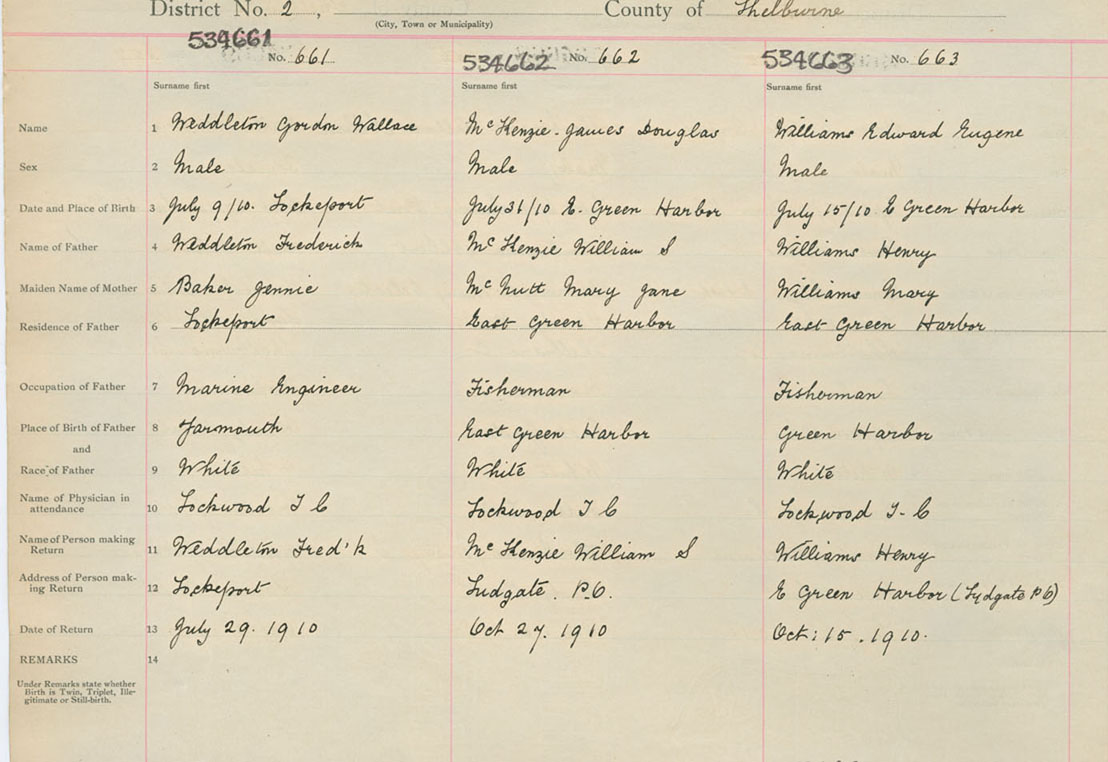 District No. 2 , County of Shelburne
(City, Town or Municipality)
534661 No. 661 534662 No. 662 534663 No. 663
Surname first Surname first Surname first
Name 1 Weddleton Gordon Wallace McKenzie - James Douglas Williams Edward Eugene
Sex 2 Male Male Male
Date and Place of Birth 3 July 9/10. Lockeport July 31/10 E. Green Harbor July 15/10 E Green Harbor
Name of Father 4 Weddleton Frederick McKenzie William S Williams Henry
Maiden Name of Mother 5 Baker Jennie McNutt Mary Jane Williams Mary
Residence of Father 6 Lockeport East Green Harbor East Green Harbor
Occupation of Father 7 Marine Engineer Fisherman Fisherman
Place of Birth of Father 8 Yarmouth East Green Harbor Green Harbor
and
Race of Father 9 White White White
Name of Physician in
attendance 10 Lockwood T C Lockwood T C Lockwood T - C
Name of Person making
Return 11 Weddleton Fred'k McKenzie William S Williams Henry
Address of Person mak-
ing Return 12 Lockeport Ludgate. P.O. E Green Harbor (Lydgate P O)
Date of Return 13 July 29. 1910 Oct 27. 1910 Oct: 15. 1910.
REMARKS 14
Under Remarks state whether
Birth is Twin, Triplet, Ille-
gitimate or Still-birth.